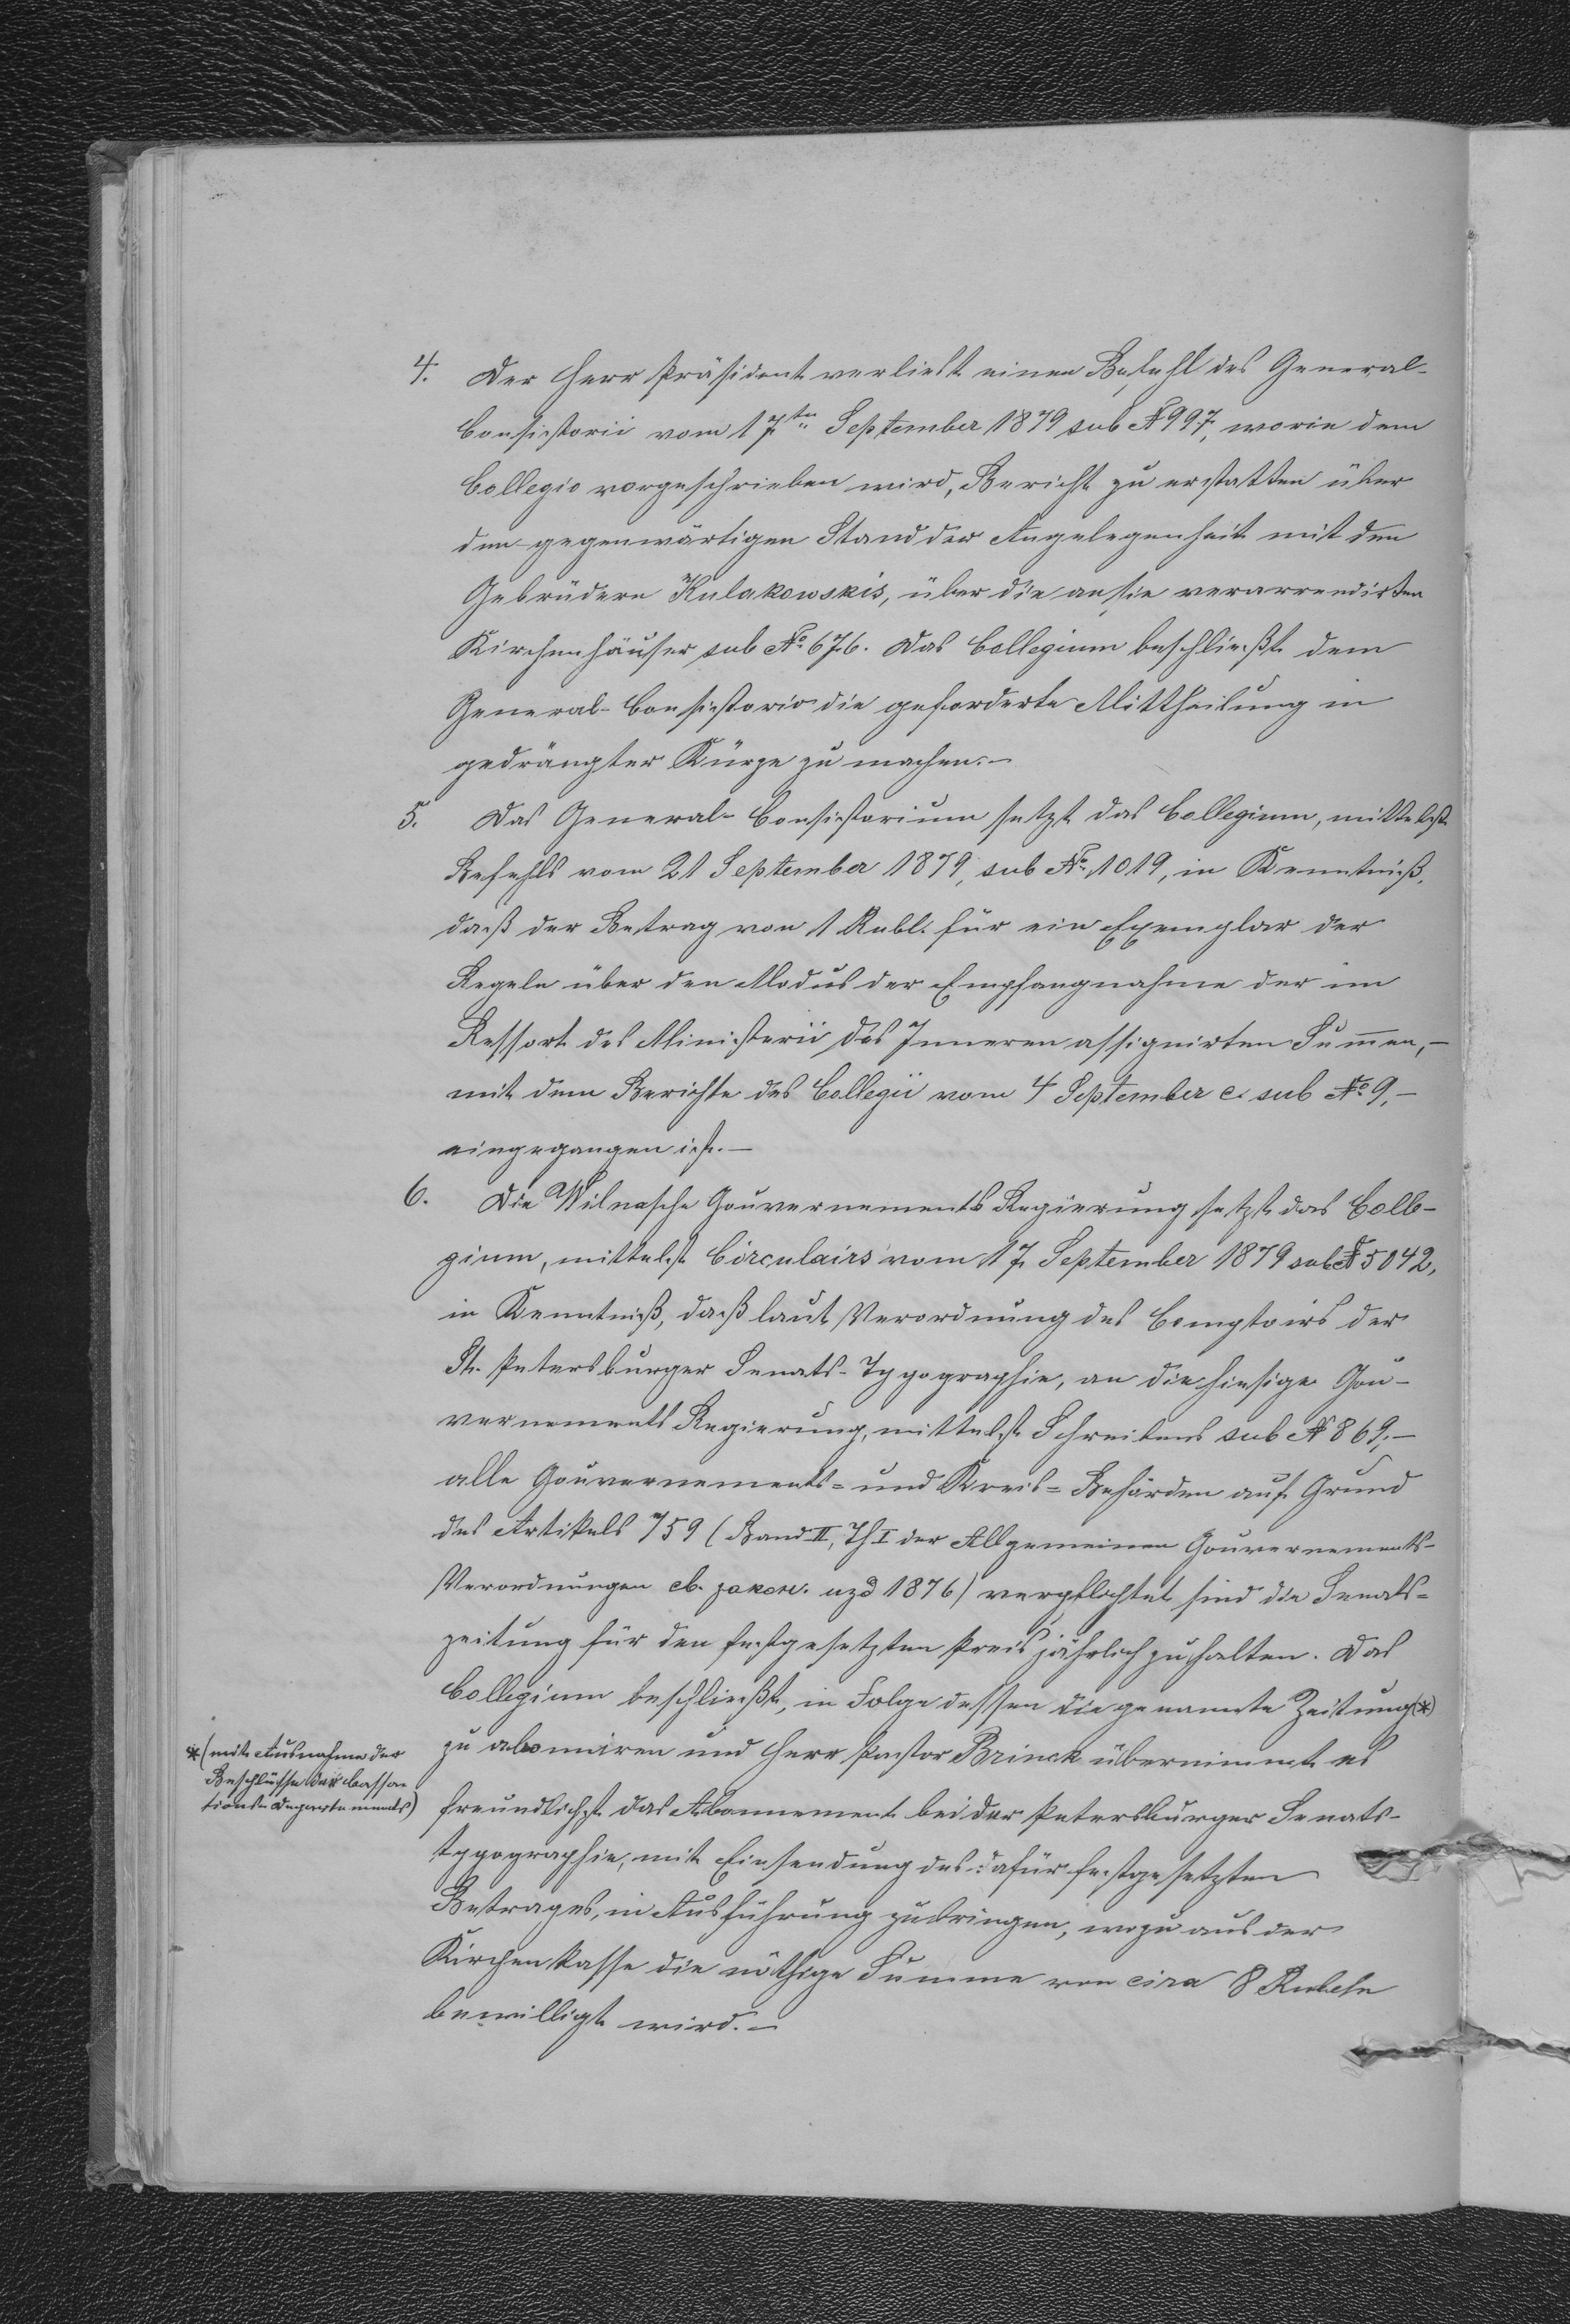 4. Der Herr Präsident verliest einen Befehl des General-
Consistorii vom 17ten September 1879 sub № 997, worin dem
Collegio vorgeschrieben wird, Bericht zu erstatten über
den gegenwärtigen Stand der Angelegenheit mit den
Gebrüdern Kulakowskis, über die an sie verarrendirten
Kirchenhäuser sub № 676. Das Collegium beschließt dem
General-Consistorio die geforderte Mittheilung in
gedrängter Kürze zu machen.–
5. Das General-Consistorium setzt das Collegium, mittelst
Befehls vom 21 September 1879, sub № 1019, in Kenntniß,
daß der Betrag von 1 Rubl. für ein Exemplar der
Regeln über den Modus der Empfangnahme der im
Ressort des Ministerii des Inneren assignirten Summen,–
mit dem Berichte des Collegii vom 4 September c. sub № 9,–
eingegangen ist.–
6. Die Wilnasche Gouvernements Regierung setzt das Colle-
gium, mittelst Circulairs vom 17 September 1879 sub № 5042,
in Kenntniß, daß laut Verordnung des Comptoirs der
St. Petersburger Senats-Typographie, an die hiesige Gou-
vernements Regierung, mittelst Schreibens sub № 869,–
alle Gouvernements- und Kreis-Behörden auf Grund
des Artikels 759 (Band II, Th I der Allgemeinen Gouvernements-
Verordnungen св. закон. изд 1876) verpflichtet sind die Senats-
zeitung für den festgesetzten Preis jährlich zu halten. Das
Collegium beschließt, in Folge dessen die genannte Zeitung *)
zu abonniren und Herr Pastor Brinck übernimmt es
freundlichst das Abonnement bei der Petersburger Senats-
typographie, mit Einsendung des dafür festgesetzten
Betrages, in Ausführung zu bringen, wozu aus der
Kirchenkasse die nöthige Summe von cira 8 Rubeln
bewilligt wird.–
*(mit Ausnahme der
Beschlüsse des Cassa-
tions-Departements)